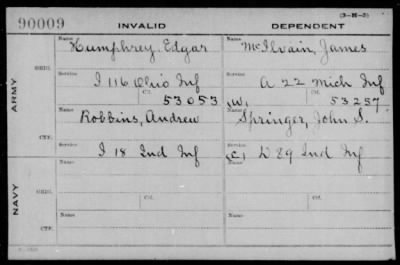 90009 INVALID DEPENDENT (3-H-3)
Name Name
Humphrey, Edgar McIlvain, James
ARMY
ORIG.
Service Service
I 116 Ohio Inf A 22 Mich Inf
Ctf. 53053 (W) Ctf. 53257
Name Name
Robbins, Andrew Springer, John S.
CTF.
Service Service
I 18 Ind Inf (C) D 29 Ind Inf
NAVY
Name Name
ORIG.
Service Ctf. Service Ctf.
Name Name
CTF.
Service Service